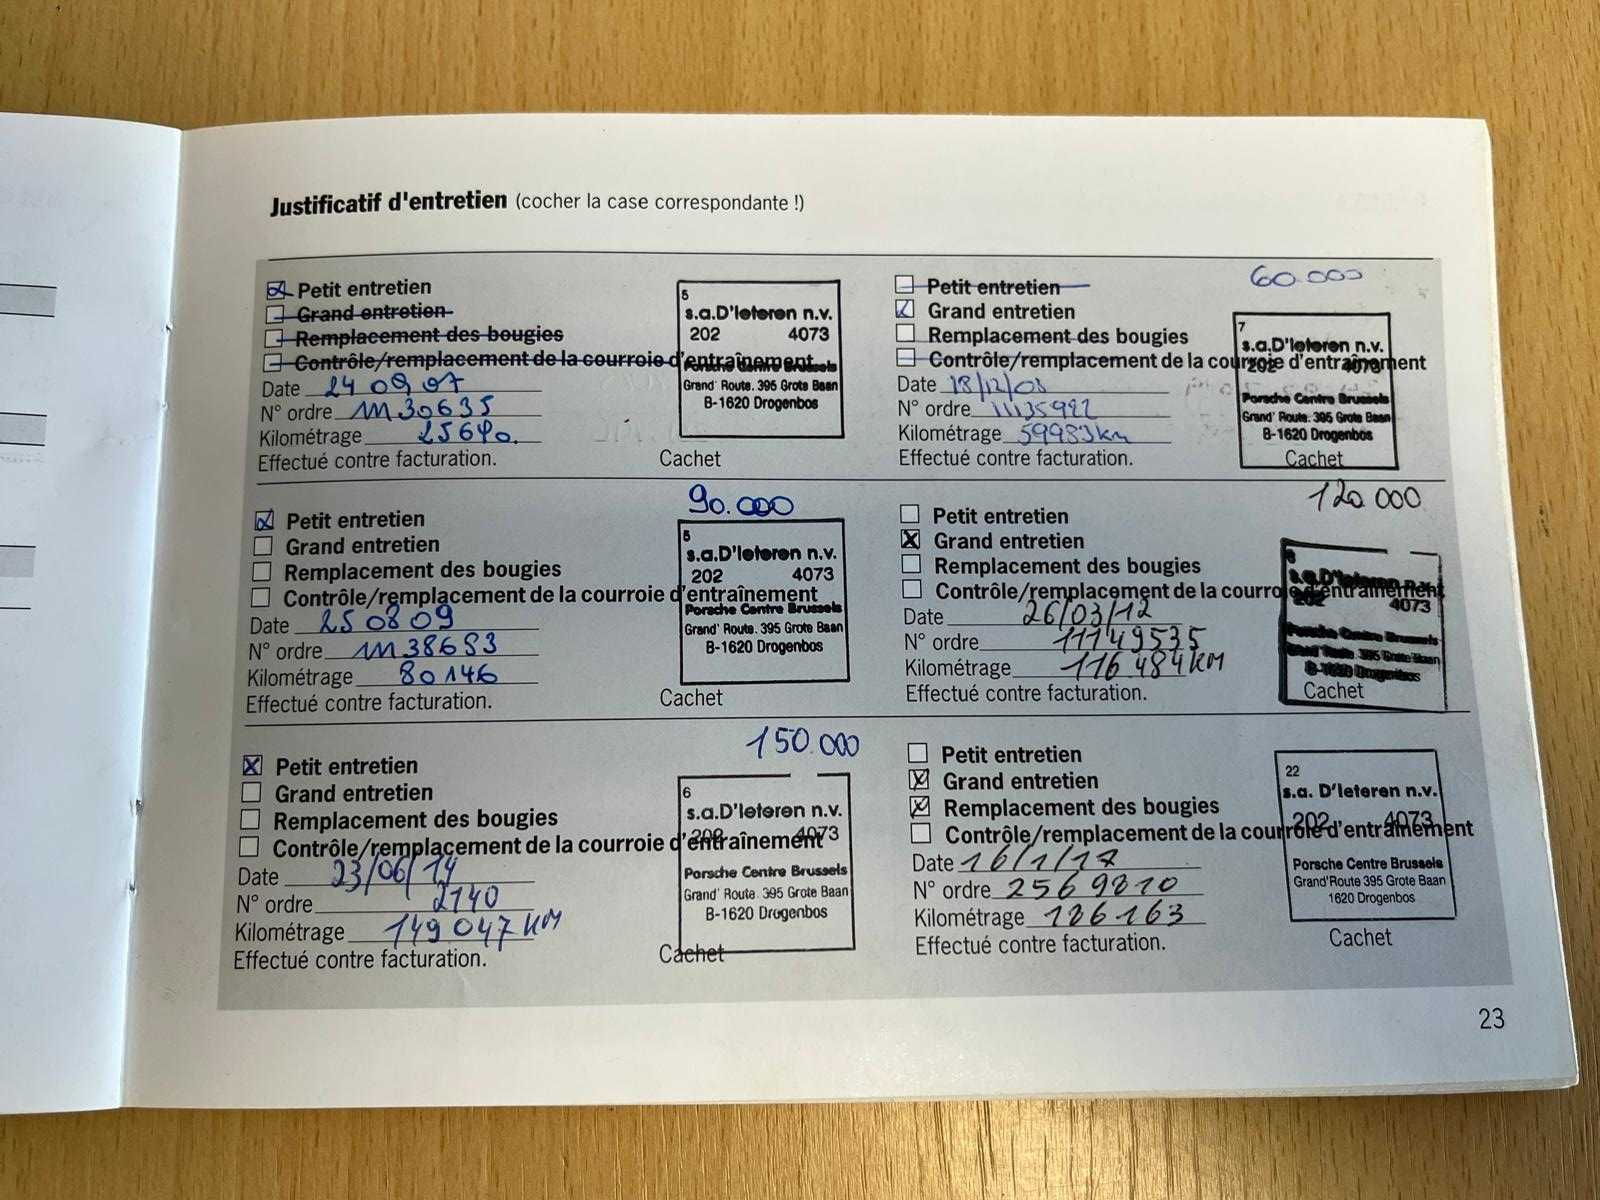 Justificatif d'entretien (cocher la case correspondante !)
Petit entretien
Grand entretien
Remplacement des bougies
Contrôle/remplacement de la courroie d'entraînement
Date 24 09 07
N° ordre 11130635
Kilométrage 25640.
Effectué contre facturation.
5
s.a.D'Ieteren n.v.
202 4073
Porsche Centre Brussels
Grand' Route. 395 Grote Baan
B-1620 Drogenbos
Cachet
60.000
Petit entretien
Grand entretien
Remplacement des bougies
Contrôle/remplacement de la courroie d'entraînement
Date 18/12/08
N° ordre 11135992
Kilométrage 59983km
Effectué contre facturation.
7
s.a.D'Ieteren n.v.
202 4073
Porsche Centre Brussels
Grand' Route. 395 Grote Baan
B-1620 Drogenbos
Cachet
90.000
Petit entretien
Grand entretien
Remplacement des bougies
Contrôle/remplacement de la courroie d'entraînement
Date 25 08 09
N° ordre 11138693
Kilométrage 80146
Effectué contre facturation.
5
s.a.D'Ieteren n.v.
202 4073
Porsche Centre Brussels
Grand' Route. 395 Grote Baan
B-1620 Drogenbos
Cachet
120.000
Petit entretien
Grand entretien
Remplacement des bougies
Contrôle/remplacement de la courroie d'entraînement
Date 26/03/12
N° ordre 11149535
Kilométrage 116.484 KM
Effectué contre facturation.
s.a.D'Ieteren n.v.
202 4073
Porsche Centre Brussels
Grand' Route. 395 Grote Baan
B-1620 Drogenbos
Cachet
150.000
Petit entretien
Grand entretien
Remplacement des bougies
Contrôle/remplacement de la courroie d'entraînement
Date 23/06/14
N° ordre 2140
Kilométrage 149 047 KM
Effectué contre facturation.
6
s.a.D'Ieteren n.v.
202 4073
Porsche Centre Brussels
Grand' Route. 395 Grote Baan
B-1620 Drogenbos
Cachet
Petit entretien
Grand entretien
Remplacement des bougies
Contrôle/remplacement de la courroie d'entraînement
Date 16/1/17
N° ordre 2569810
Kilométrage 186163
Effectué contre facturation.
22
s.a. D'Ieteren n.v.
202 4073
Porsche Centre Brussels
Grand'Route 395 Grote Baan
1620 Drogenbos
Cachet
23